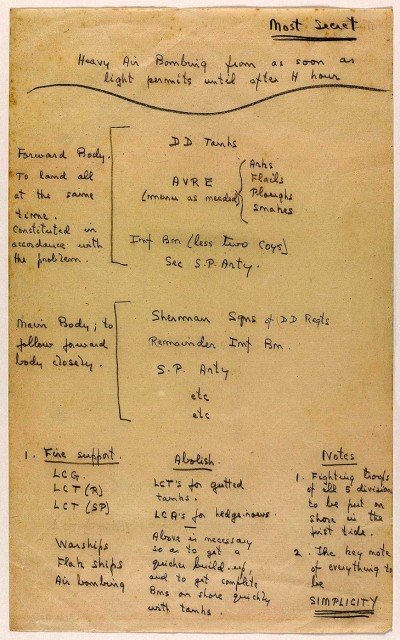 Most Secret
Heavy Air Bombing from as soon as
light permits until after H hour
Forward Body.
To land all
at the same
time.
Constituted in
accordance with
the problem.
DD Tanks
AVRE
(menus as needed)
Arks
Flails
Ploughs
Snakes
Inf Bn (less two Coys)
Sec S.P. Arty.
Main Body; to
follow forward
body closely.
Sherman Sqns of DD Regts
Remainder Inf Bn.
S.P. Arty
etc
etc
1. Fire support.
LCG.
LCT (R)
LCT (SP)
Warships
Flak ships
Air bombing
Abolish.
LCT's for gutted
tanks.
LCA's for hedge-rows.
Above is necessary
so as to get a
quicker build-up,
and to get complete
Bns on shore quickly
with tanks.
Notes
1. Fighting troops
of all 5 divisions
to be put on
shore in the
first tide.
2. The key note
of everything to
be
SIMPLICITY